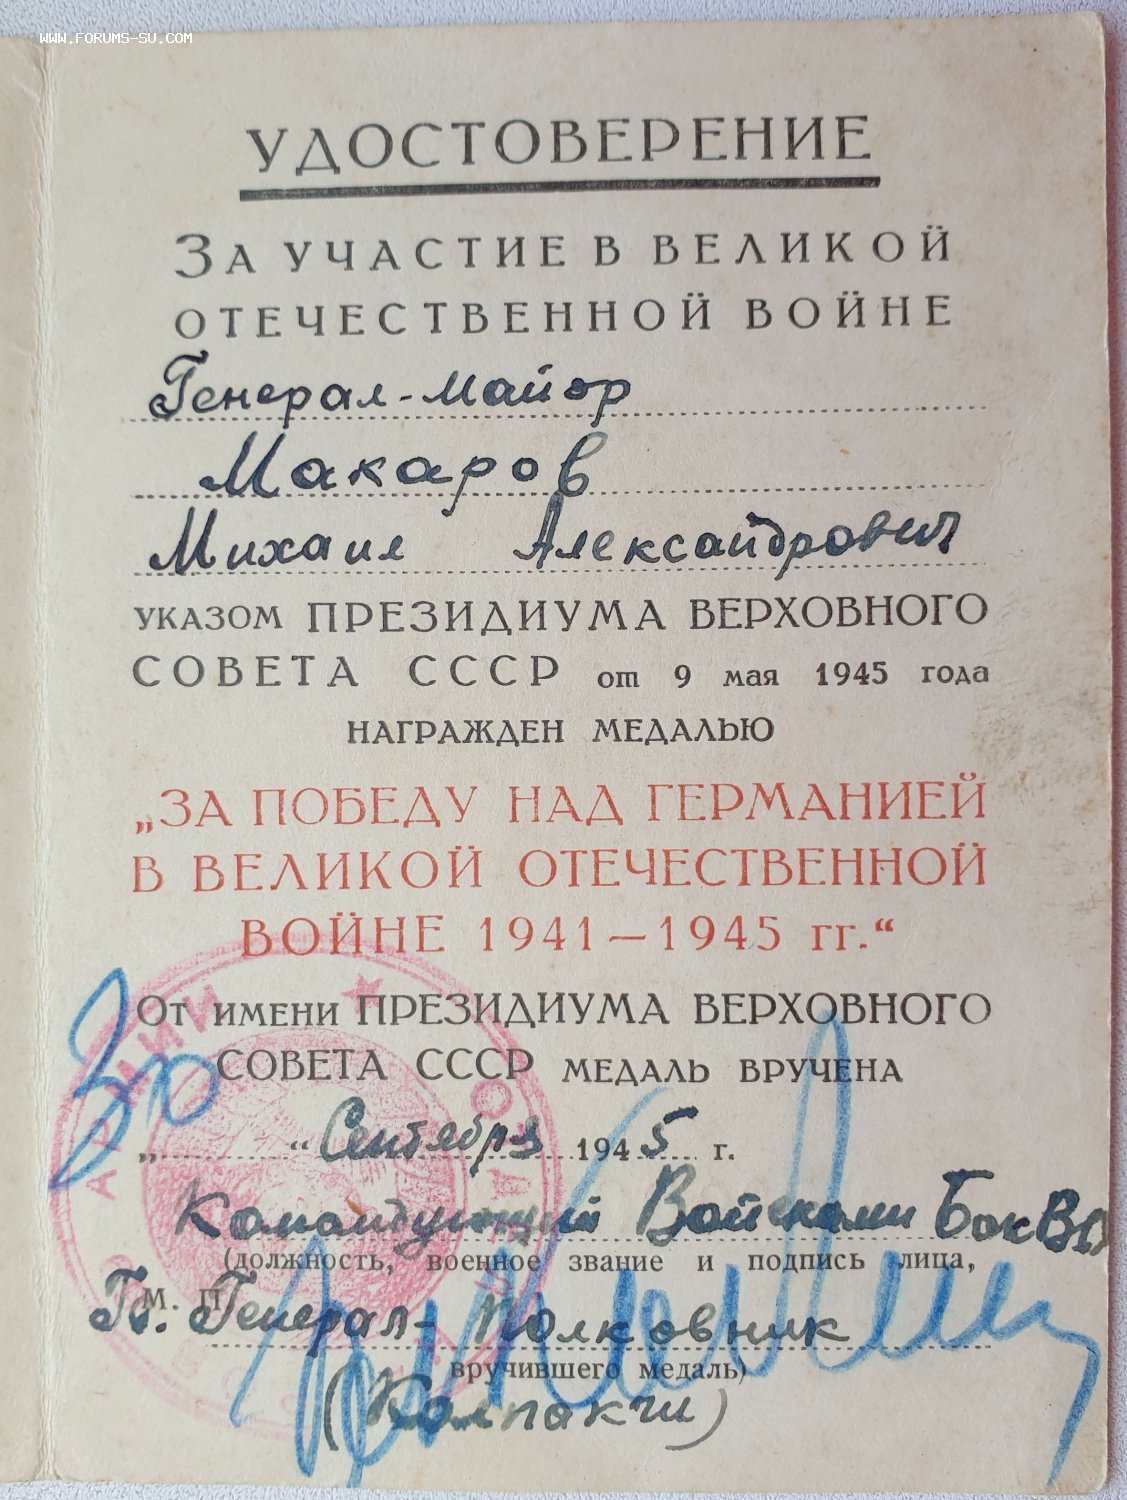 WWW.FORUMS-SU.COM
УДОСТОВЕРЕНИЕ
ЗА УЧАСТИЕ В ВЕЛИКОЙ
ОТЕЧЕСТВЕННОЙ ВОЙНЕ
Генерал-майор
Макаров
Михаил Александрович
УКАЗОМ ПРЕЗИДИУМА ВЕРХОВНОГО
СОВЕТА СССР от 9 мая 1945 года
НАГРАЖДЕН МЕДАЛЬЮ
„ЗА ПОБЕДУ НАД ГЕРМАНИЕЙ
В ВЕЛИКОЙ ОТЕЧЕСТВЕННОЙ
ВОЙНЕ 1941—1945 гг.“
ОТ ИМЕНИ ПРЕЗИДИУМА ВЕРХОВНОГО
СОВЕТА СССР МЕДАЛЬ ВРУЧЕНА
30
„ “ Сентября 1945 г.
Командующий Войсками БакВО
(должность, военное звание и подпись лица,
М. П.
Гв. Генерал-Полковник
вручившего медаль)
(Колпакчи)